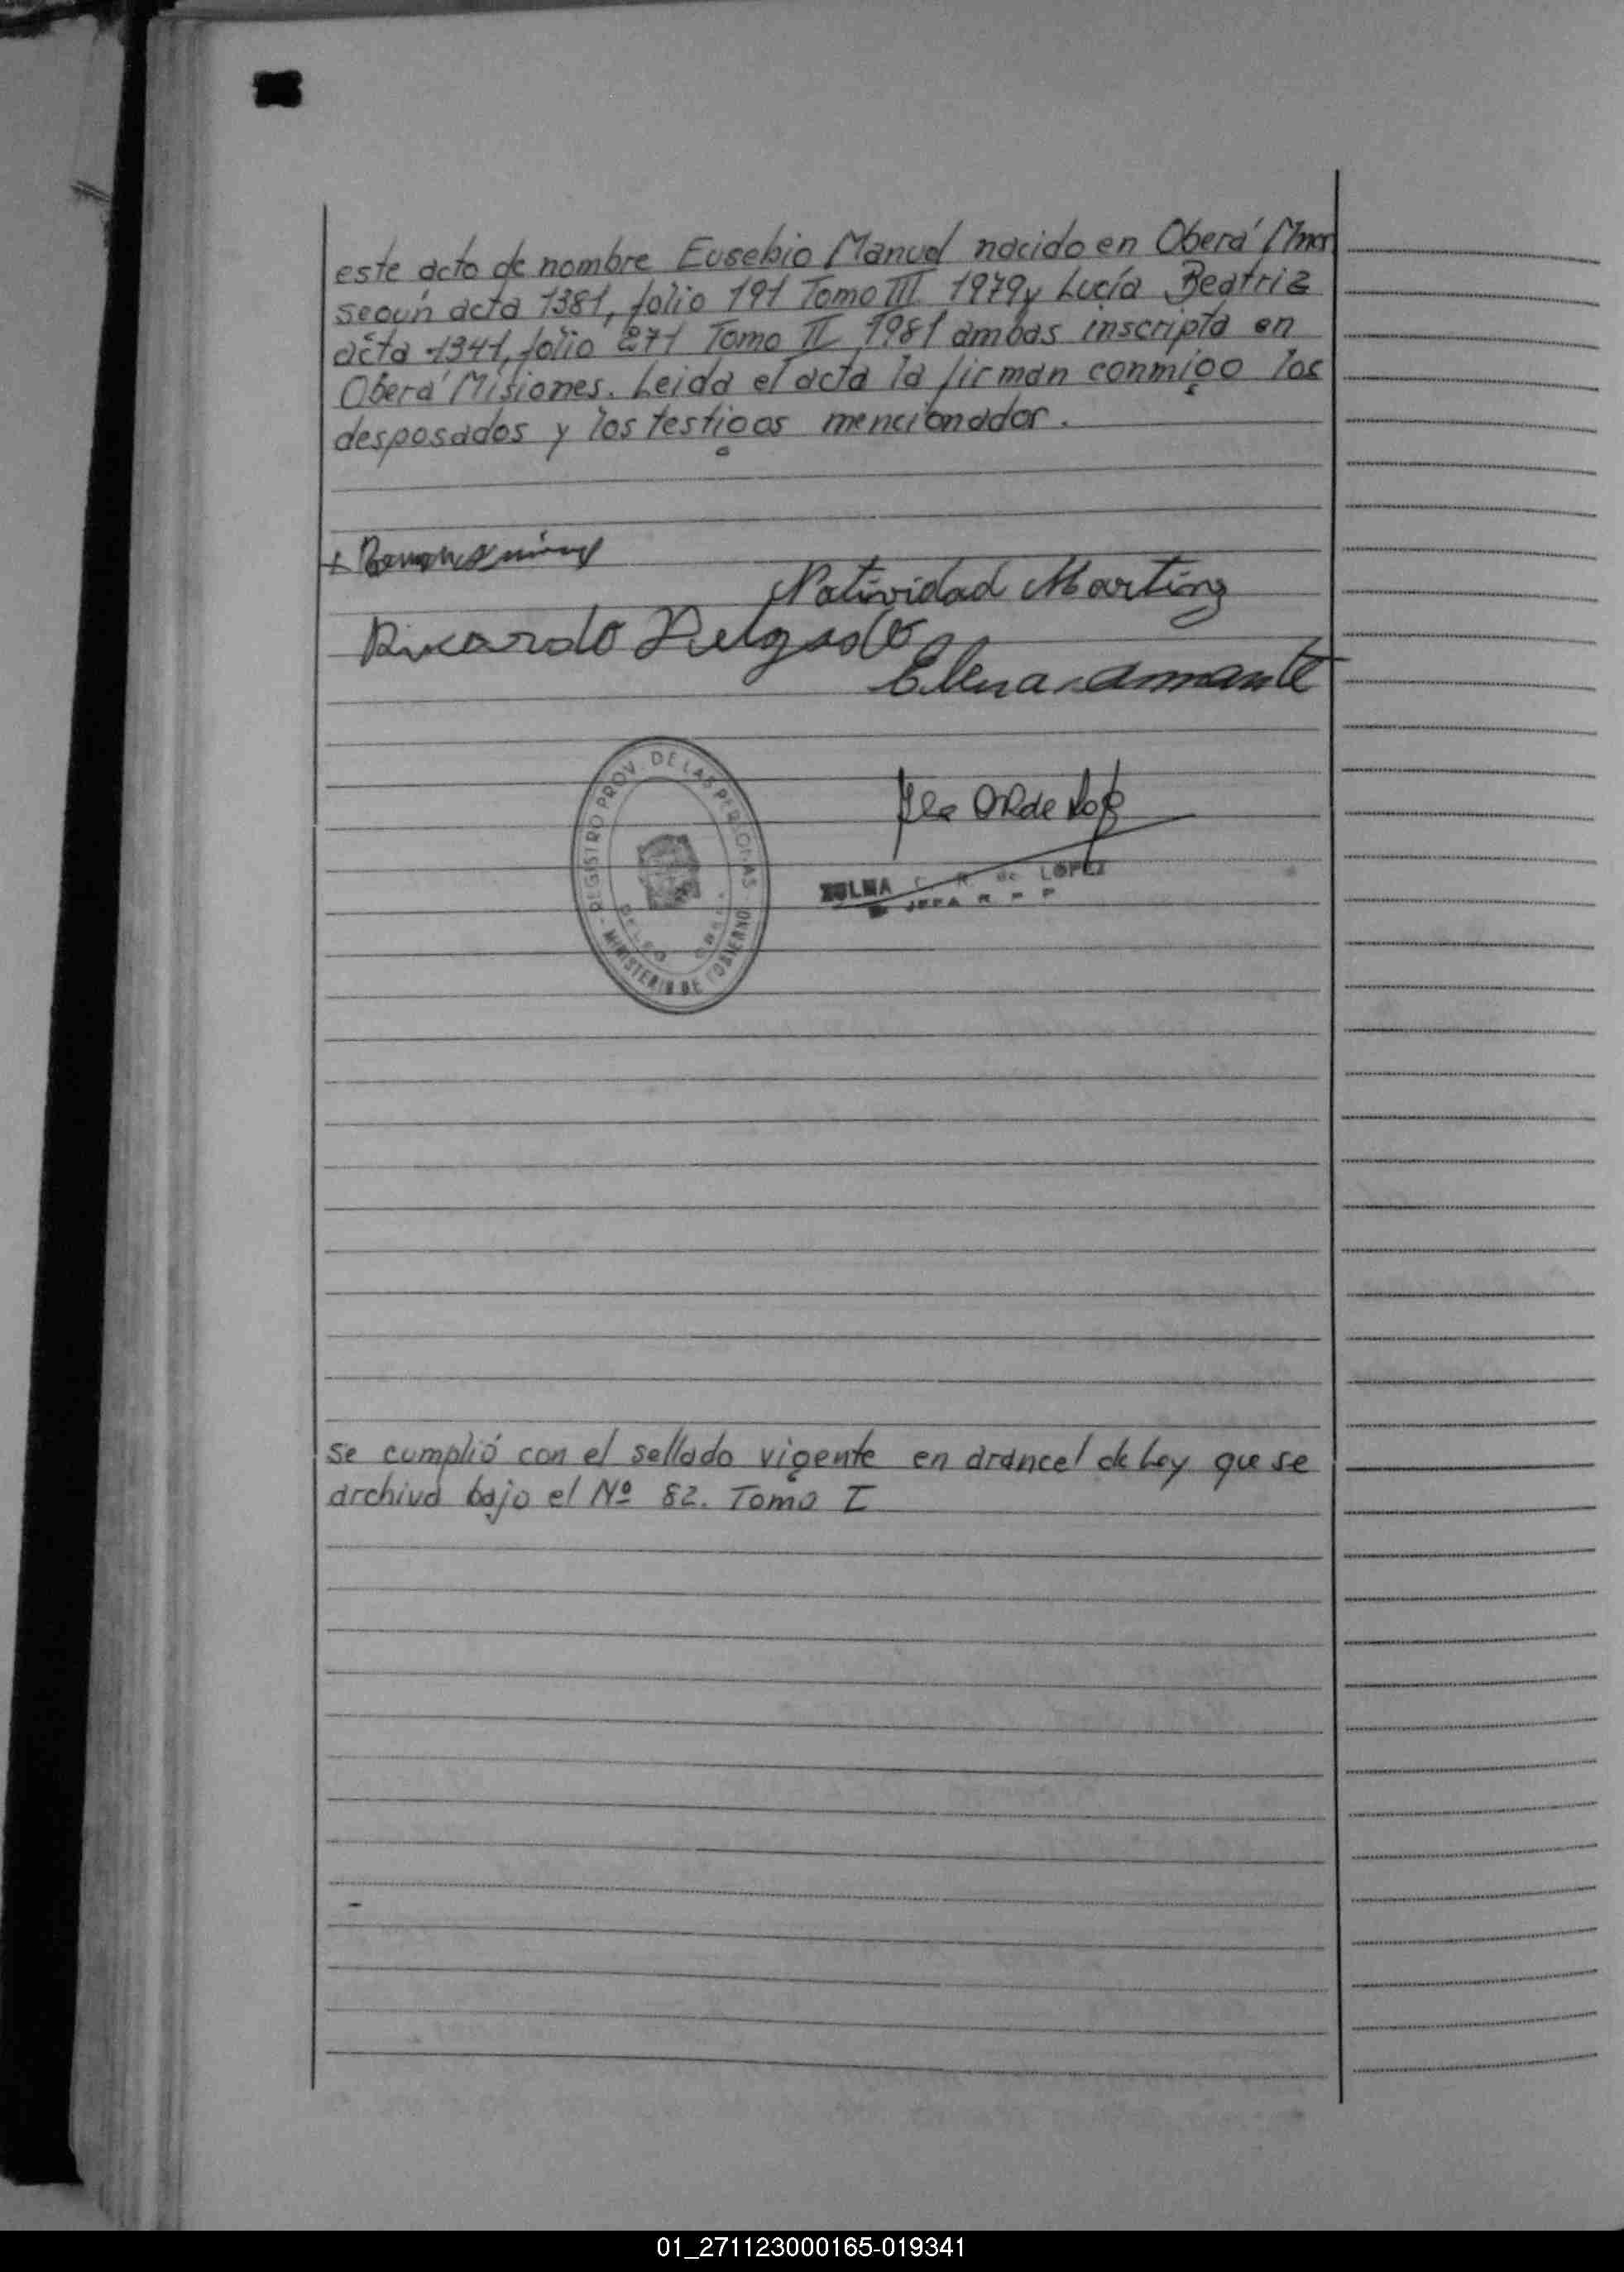 este acto de nombre Eusebio Manuel nacido en Oberá Mnes
según acta 1381, folio 191 Tomo III 1979 y Lucía Beatriz
acta 1341, folio 271 Tomo II 1981 ambas inscripta en
Oberá Misiones. Leida el acta la firman conmigo los
desposados y los testigos mencionados.
Natividad Martinz
Ricardo Delgado
Elena Amante
REGISTRO PROV. DE LAS PERSONAS
MINISTERIO DE GOBIERNO
ZULMA C. R. de LOPEZ
JEFA R P P
se cumplió con el sellado vigente en arancel de Ley que se
archiva bajo el Nº 82. Tomo I
01_271123000165-019341